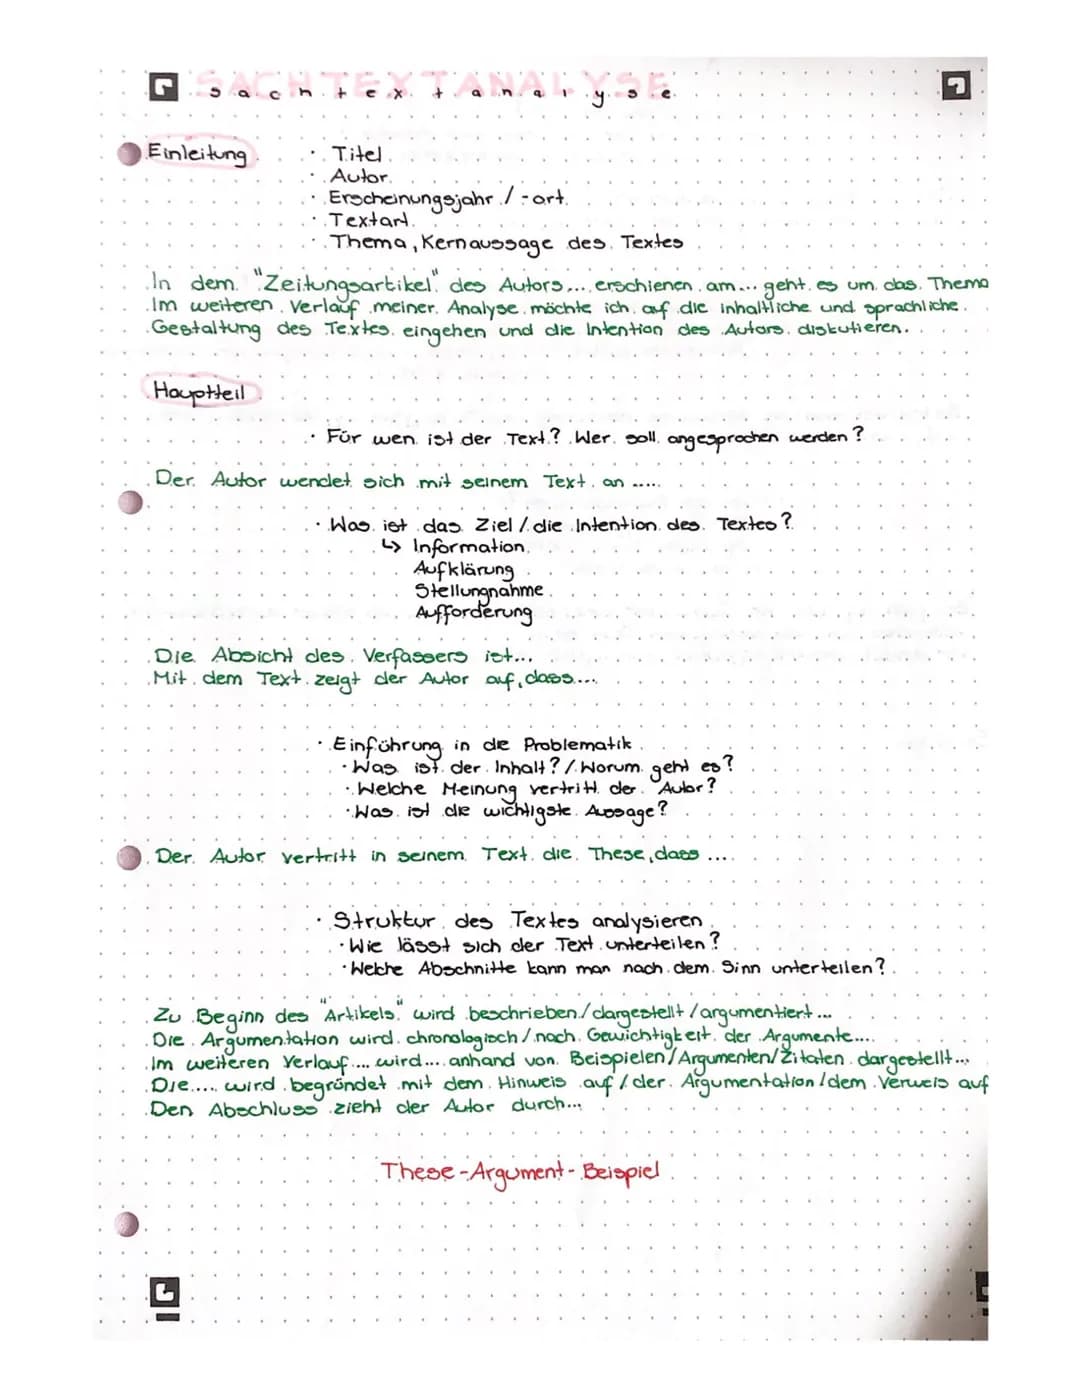 SACHTEXTANALYSE
sachtextanalyse
Einleitung
· Titel
· Autor
· Erscheinungsjahr / -ort
· Textart
· Thema, Kernaussage des Textes
In dem "Zeitungsartikel" des Autors... erschienen am... geht es um das Thema
Im weiteren Verlauf meiner Analyse möchte ich auf die inhaltliche und sprachliche
Gestaltung des Textes eingehen und die Intention des Autors diskutieren.
Hauptteil
· Für wen ist der Text? Wer soll angesprochen werden?
Der Autor wendet sich mit seinem Text an .....
· Was ist das Ziel / die Intention des Textes?
↳ Information
Aufklärung
Stellungnahme
Aufforderung
Die Absicht des Verfassers ist...
Mit dem Text zeigt der Autor auf, dass...
· Einführung in die Problematik
· Was ist der Inhalt? / Worum geht es?
· Welche Meinung vertritt der Autor?
· Was ist die wichtigste Aussage?
Der Autor vertritt in seinem Text die These, dass ...
· Struktur des Textes analysieren
· Wie lässt sich der Text unterteilen?
· Welche Abschnitte kann man nach dem Sinn unterteilen?
Zu Beginn des "Artikels" wird beschrieben/dargestellt/argumentiert...
Die Argumentation wird chronologisch / nach Gewichtigkeit der Argumente...
Im weiteren Verlauf ... wird... anhand von Beispielen/Argumenten/Zitaten dargestellt...
Die.... wird begründet mit dem Hinweis auf / der Argumentation / dem Verweis auf
Den Abschluss zieht der Autor durch...
These - Argument - Beispiel